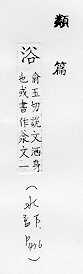 類篇
浴
俞玉切說文洒身
也或書作𣴲文一
(水部下.